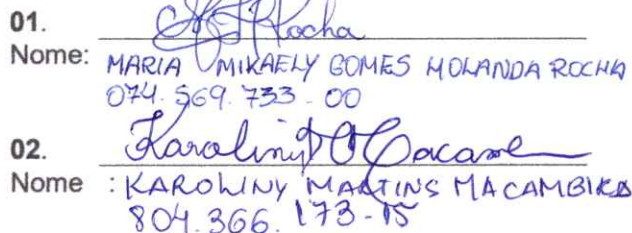 01.
Rocha
Nome: MARIA MIKAELY GOMES HOLANDA ROCHA
074.569.733-00
02.
Nome : KAROLINY MARTINS MACAMBIRA
804.366.173-15